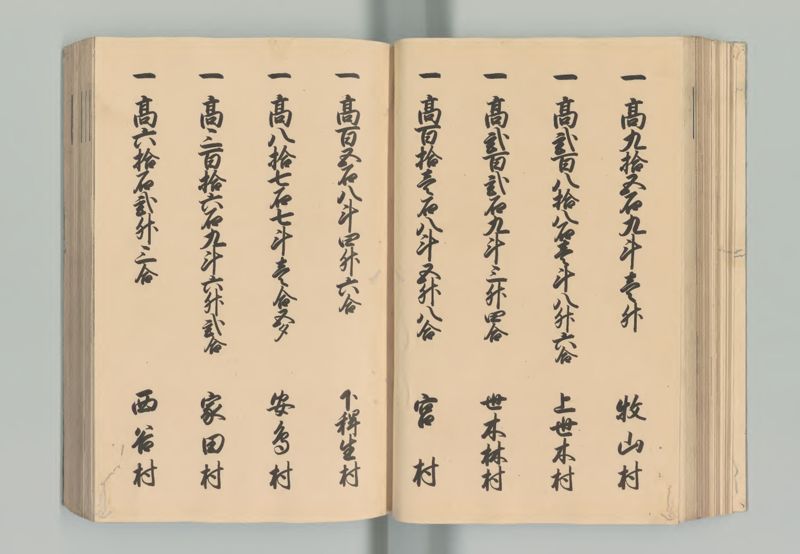 一 髙九拾五石九斗壱升 牧山村
一 髙弐百八拾八石壱斗八升六合 上世木村
一 髙弐百弐石九斗三升四合 世木林村
一 髙百拾壱石八斗五升八合 宮村
一 髙百五石八斗四升六合 下稗生村
一 髙八拾七石七斗壱合五夕 安鳥村
一 髙三百拾六石九斗六升弐合 家田村
一 髙六拾石弐升三合 西谷村